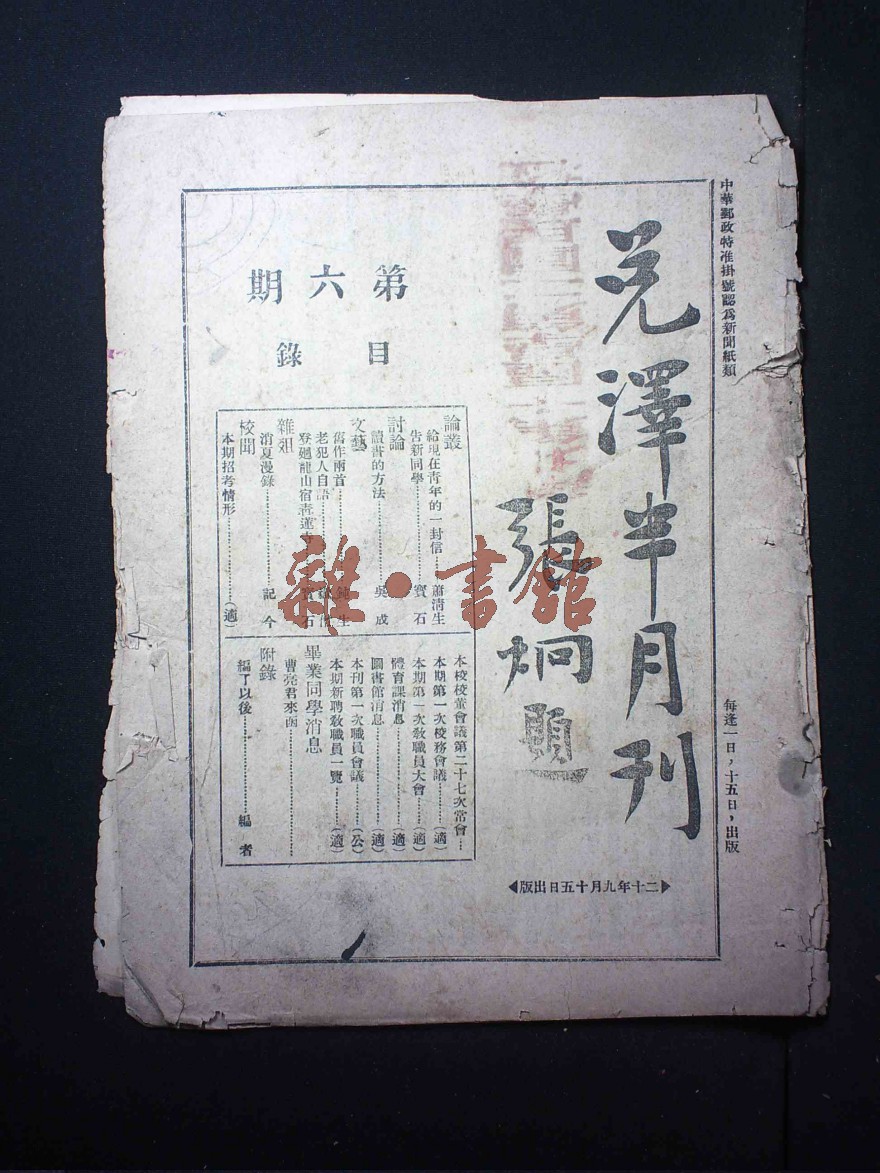 中華郵政特准掛號認爲新聞紙類
每逢一日，十五日，出版
光澤半月刊
張炯題
▶二十年九月十五日出版◀
第六期
目錄
論叢
給現在青年的一封信……蕭淸生
告新同學……寳石
討論
讀書的方法……吳成
文藝
舊作兩首……鈍生
老犯人自語……
登廻龍山宿靑蓮……寳石
雜俎
消夏漫錄……記今
校聞
本期招考情形……(適)
本校校董會議第二十七次常會…
本期第一次校務會議……(適)
本期第一次敎職員大會……(適)
體育課消息……(適)
圖書館消息……(適)
本刊第一次職員會議……(公)
本期新聘敎職員一覽……(適)
畢業同學消息
曹亮君來函
附錄
編了以後……編者
雜·書館